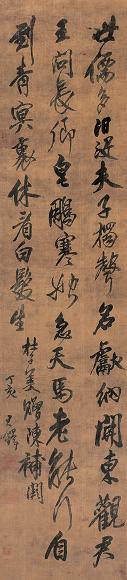 世儒多汩沒夫子獨聲名獻納開東觀君
王問長卿皂鵰寒始急天馬老能行自
到青冥裏休看白髮生 杜子美贈陳補闕
丁亥 王鐸